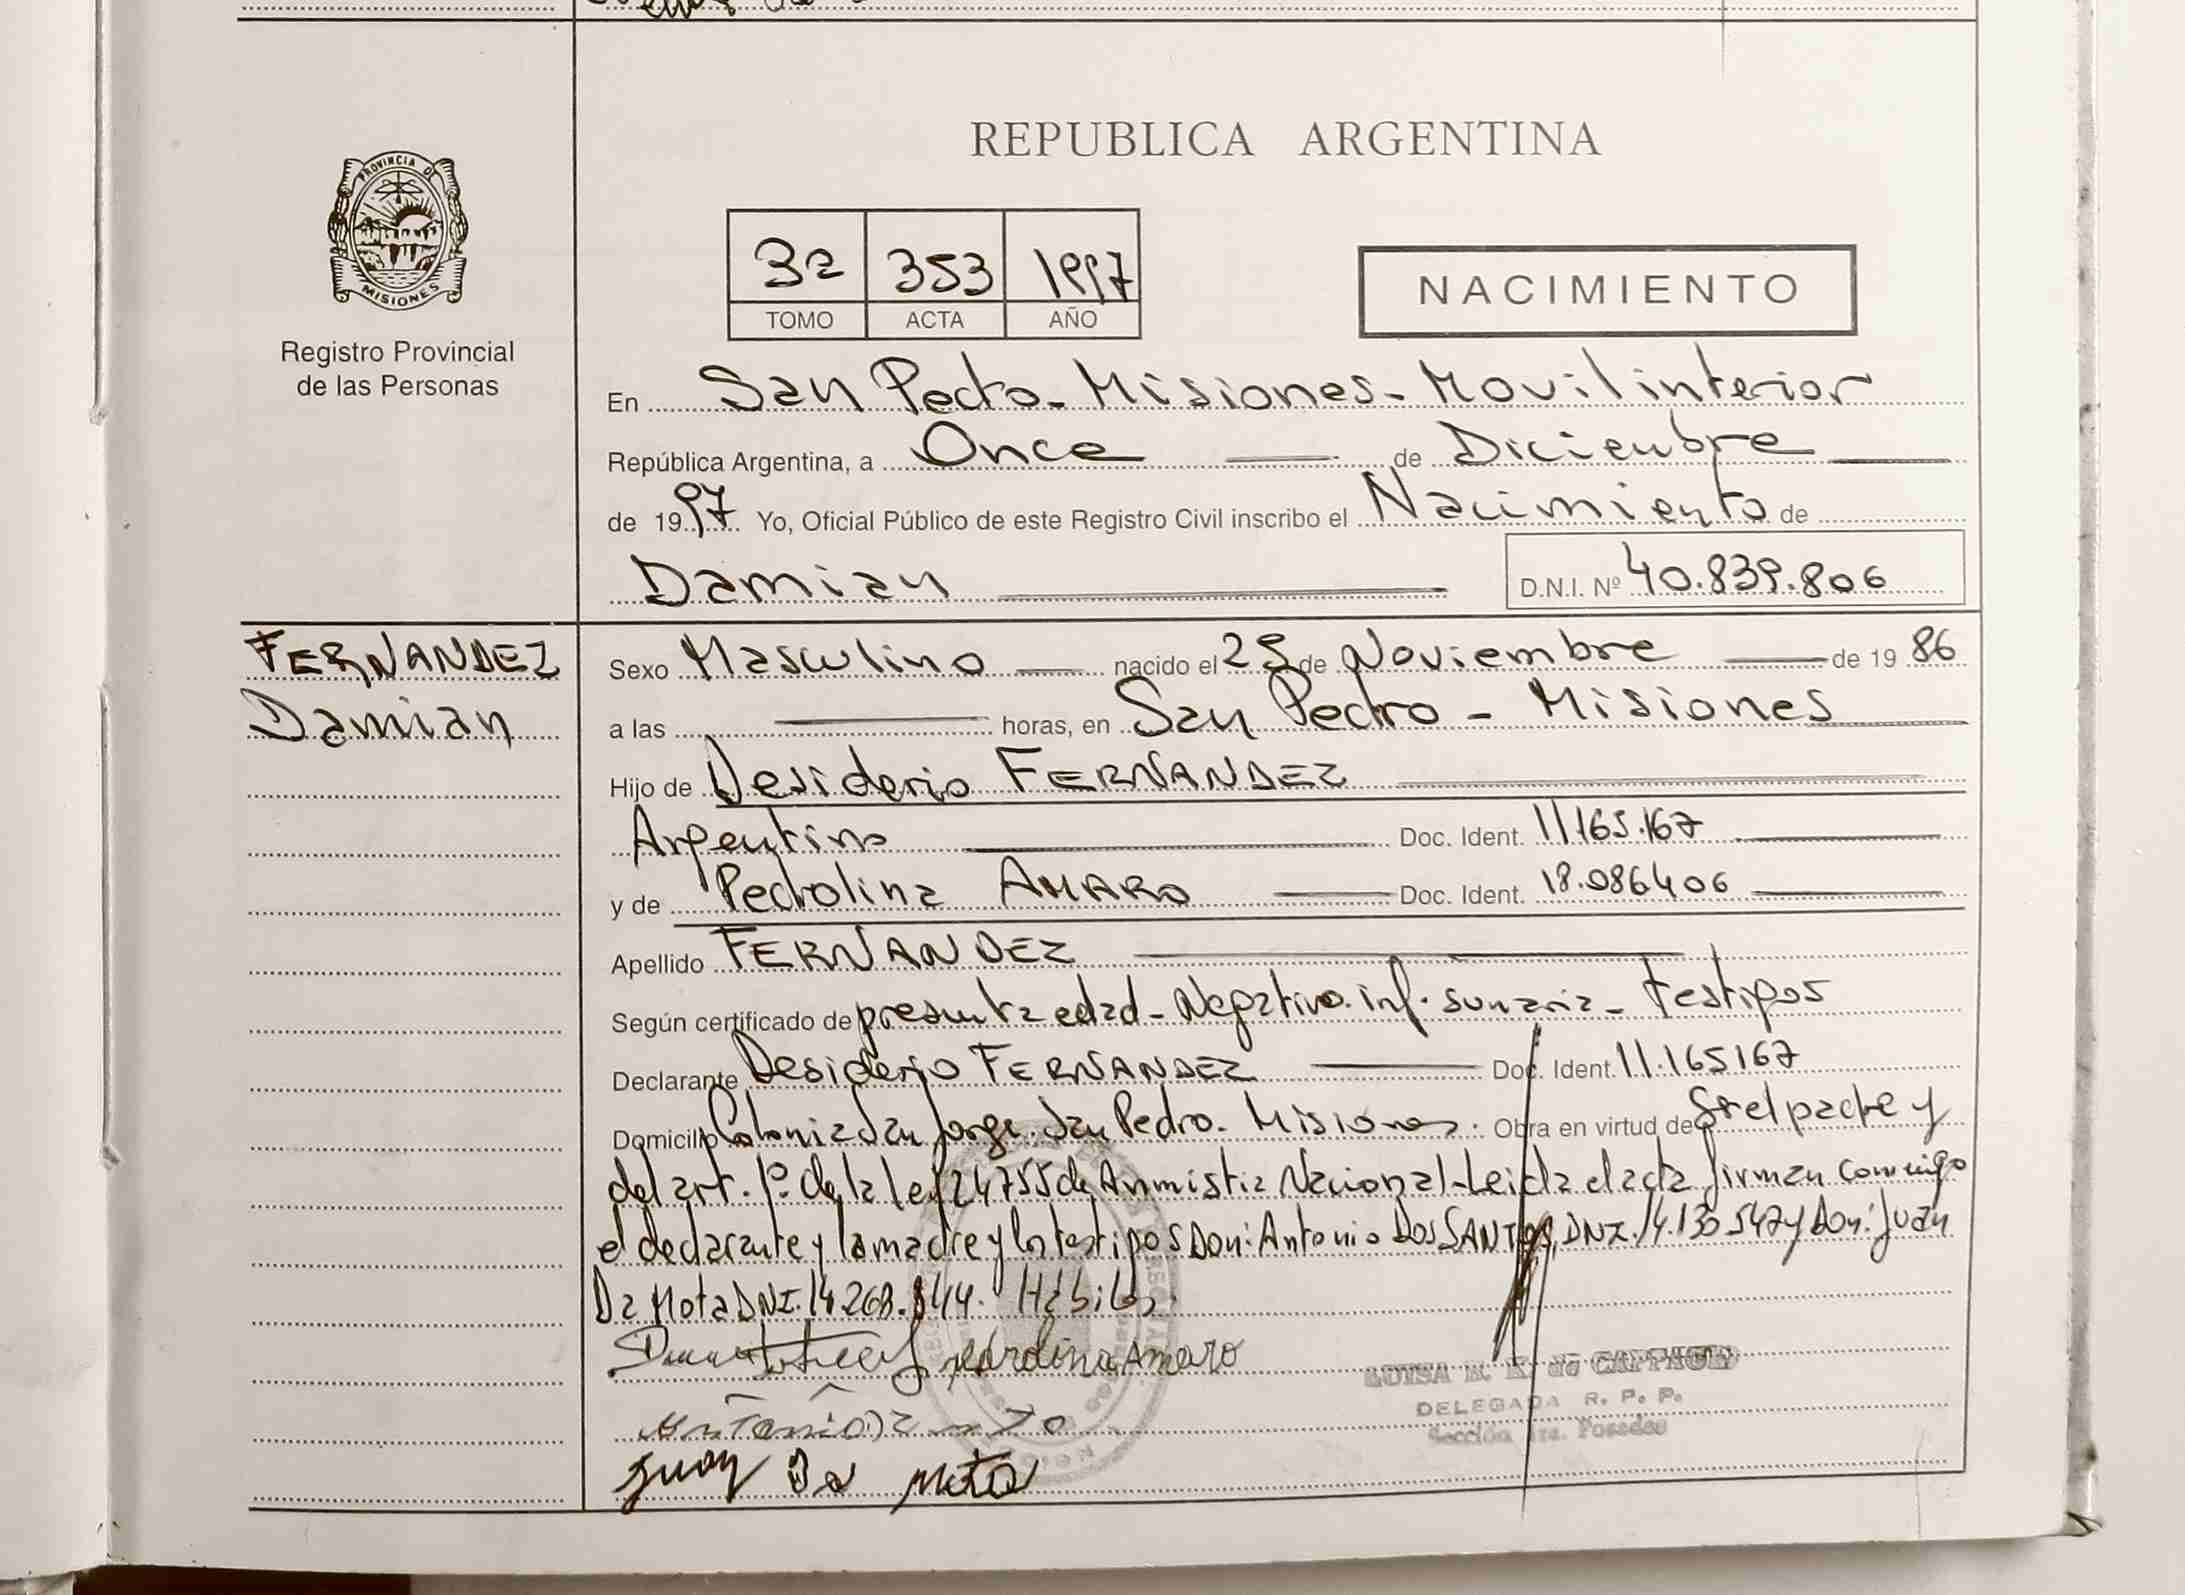 REPUBLICA ARGENTINA
PROVINCIA DE
MISIONES
Registro Provincial
de las Personas
32 353 1997
TOMO ACTA AÑO
NACIMIENTO
En San Pedro - Misiones - Movil interior
República Argentina, a Once de Diciembre
de 1997 Yo, Oficial Público de este Registro Civil inscribo el Nacimiento de
Damian D.N.I. Nº 40.839.806
FERNANDEZ
Damian
Sexo Masculino nacido el de Noviembre de 1986
a las horas, en San Pedro - Misiones
Hijo de Desiderio FERNANDEZ
Argentino Doc. Ident. 11.165.167
y de Pedrolina AMARO Doc. Ident. 18.086406
Apellido FERNANDEZ
Según certificado de presunta edad - Negativo. inf. sumaria - Testigos
Declarante Desiderio FERNANDEZ Doc. Ident. 11.165167
Domicilio Colonia San Jorge. San Pedro. Misiones. Obra en virtud de Ser el padre y
del art. 1º. de la ley 24755 de Amnistia Nacional - Leida el acta firman conmigo
el declarante y la madre y los testigos Don: Antonio Dos SANTOS, DNI. 14.130 547 y Don: Juan
Da Mota DNI. 14.268.844. Hábiles.
Pedrolina Amaro
LUISA
DELEGADA R. P. P.
Sección 1ra. Posadas
Juan Da Mota